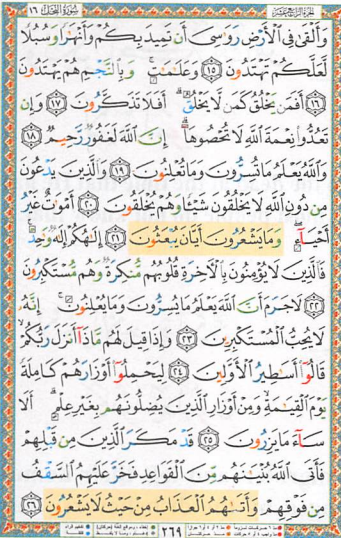 الجزء الرابع عشر سورة النحل ١٦
وَأَلْقَىٰ فِى ٱلْأَرْضِ رَوَٰسِىَ أَن تَمِيدَ بِكُمْ وَأَنْهَٰرًا وَسُبُلًا
لَّعَلَّكُمْ تَهْتَدُونَ ١٥ وَعَلَٰمَٰتٍ ۚ وَبِٱلنَّجْمِ هُمْ يَهْتَدُونَ
١٦ أَفَمَن يَخْلُقُ كَمَن لَّا يَخْلُقُ ۗ أَفَلَا تَذَكَّرُونَ ١٧ وَإِن
تَعُدُّوا۟ نِعْمَةَ ٱللَّهِ لَا تُحْصُوهَآ ۗ إِنَّ ٱللَّهَ لَغَفُورٌ رَّحِيمٌ ١٨
وَٱللَّهُ يَعْلَمُ مَا تُسِرُّونَ وَمَا تُعْلِنُونَ ١٩ وَٱلَّذِينَ يَدْعُونَ
مِن دُونِ ٱللَّهِ لَا يَخْلُقُونَ شَيْـًٔا وَهُمْ يُخْلَقُونَ ٢٠ أَمْوَٰتٌ غَيْرُ
أَحْيَآءٍ ۖ وَمَا يَشْعُرُونَ أَيَّانَ يُبْعَثُونَ ٢١ إِلَٰهُكُمْ إِلَٰهٌ وَٰحِدٌ ۚ
فَٱلَّذِينَ لَا يُؤْمِنُونَ بِٱلْـَٔاخِرَةِ قُلُوبُهُم مُّنكِرَةٌ وَهُم مُّسْتَكْبِرُونَ
٢٢ لَا جَرَمَ أَنَّ ٱللَّهَ يَعْلَمُ مَا يُسِرُّونَ وَمَا يُعْلِنُونَ ۚ إِنَّهُۥ
لَا يُحِبُّ ٱلْمُسْتَكْبِرِينَ ٢٣ وَإِذَا قِيلَ لَهُم مَّاذَآ أَنزَلَ رَبُّكُمْ ۙ
قَالُوٓا۟ أَسَٰطِيرُ ٱلْأَوَّلِينَ ٢٤ لِيَحْمِلُوٓا۟ أَوْزَارَهُمْ كَامِلَةً
يَوْمَ ٱلْقِيَٰمَةِ ۙ وَمِنْ أَوْزَارِ ٱلَّذِينَ يُضِلُّونَهُم بِغَيْرِ عِلْمٍ ۗ أَلَا
سَآءَ مَا يَزِرُونَ ٢٥ قَدْ مَكَرَ ٱلَّذِينَ مِن قَبْلِهِمْ
فَأَتَى ٱللَّهُ بُنْيَٰنَهُم مِّنَ ٱلْقَوَاعِدِ فَخَرَّ عَلَيْهِمُ ٱلسَّقْفُ
مِن فَوْقِهِمْ وَأَتَىٰهُمُ ٱلْعَذَابُ مِنْ حَيْثُ لَا يَشْعُرُونَ ٢٦
٢٦٩